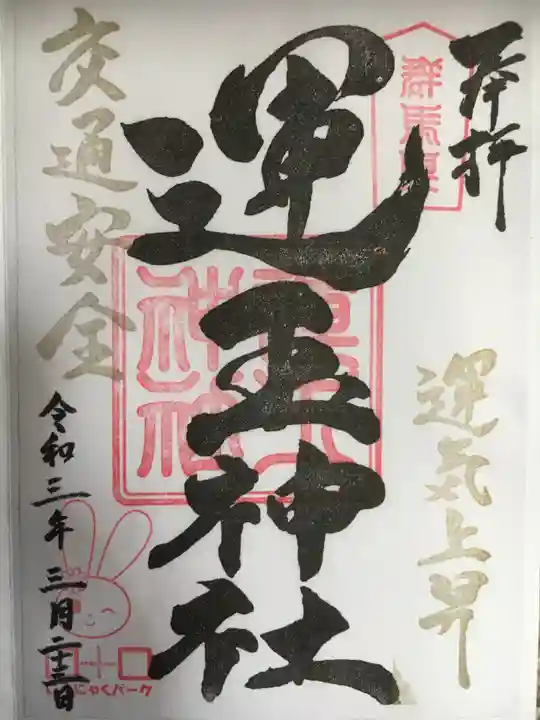 奉拝
群馬県
運気上昇
運玉神社
交通安全
令和三年 三月二十三日
にゃくパーク